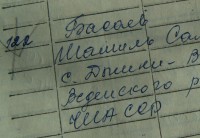 Басаев
Шамиль Сал
с. Дышни-В
Веденского р
ЧИАССР